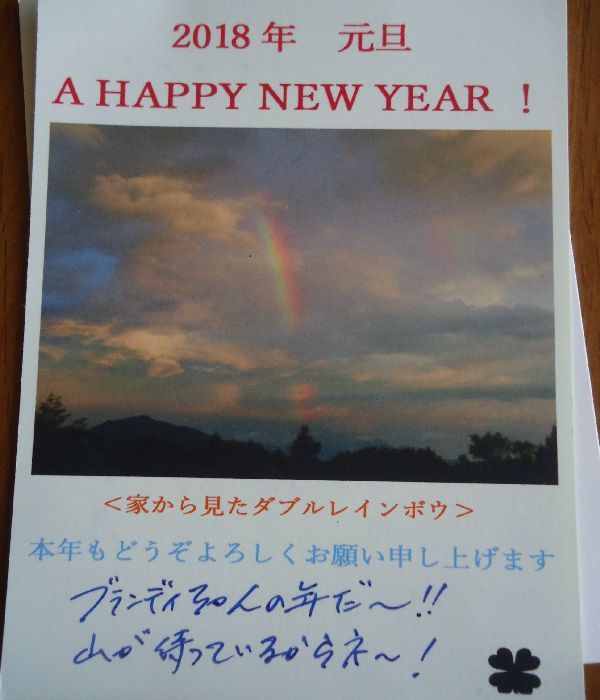 2018年 元旦
A HAPPY NEW YEAR !
<家から見たダブルレインボウ>
本年もどうぞよろしくお願い申し上げます
ブランディちゃんの年だ〜!!
山が待っているからネ〜!